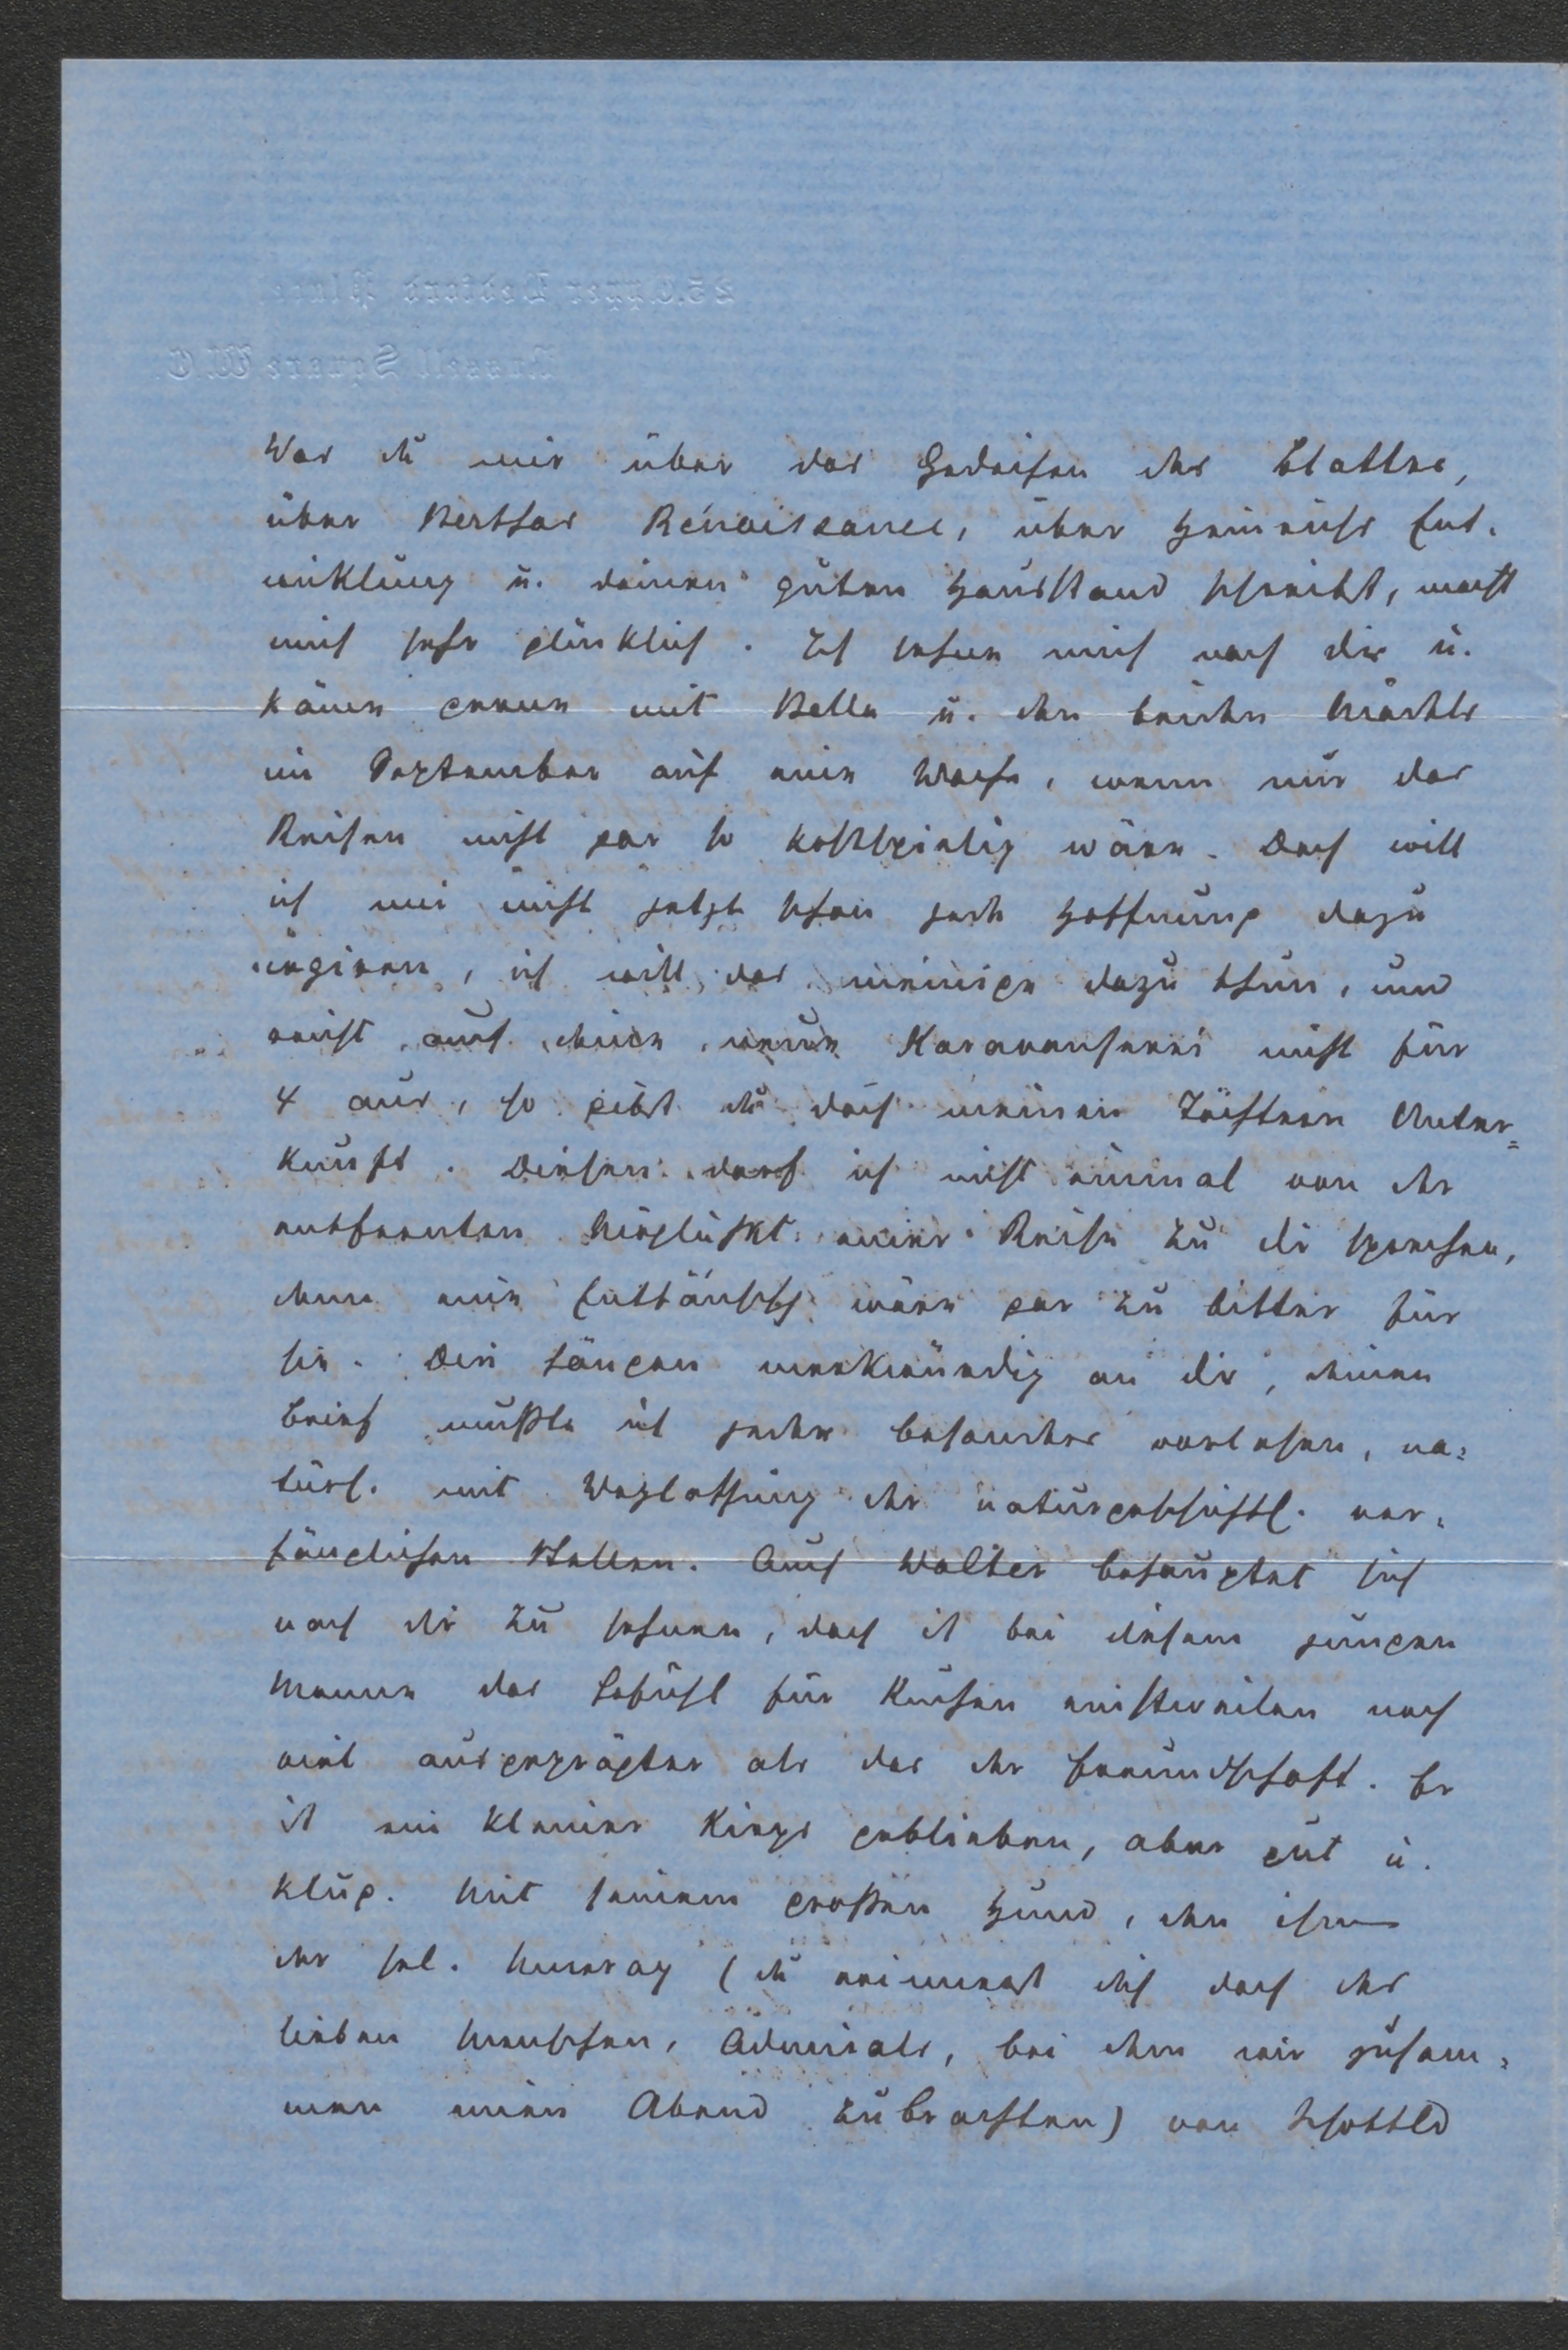 25. Upper Bedford Place
Russell Square W.C.
Was du mir über das Gedeihen des Blattes,
über Berthas Renaissance, über Heinrichs Ent-
wicklung u. deinen guten Hausstand schreibst, macht
mich sehr glücklich. Ich sehne mich nach dir u.
käme gerne mit Bella u. den beiden Mädels
im September auf eine Woche, wenn nur das
Reisen nicht gar so kostspielig wäre. Doch will
ich mir nicht jetzt schon jede Hoffnung dazu
negieren, ich will das meinige dazu thun, und
reicht auch deine neue Karavanserei nicht für
4 aus, so gibst du doch meinen Töchtern Unter=
kunft. Diesen darf ich nicht einmal von der
entfernten Möglichkt. einer Reise zu dir sprechen,
denn eine Enttäuschg wäre gar zu bitter für
sie. Die hängen merkwürdig an dir, deinen
Brief mußte ich jeder besonders vorlesen, na=
türl. mit Weglassung der naturgeschichtl. ver-
fänglichen Stellen. Auch Walter behauptet sich
nach dir zu sehnen, doch ist bei diesem jungen
Manne das Gefühl für Kuchen einstweilen noch
viel ausgeprägter als das der Freundschaft. Er
ist ein kleiner Knirps geblieben, aber gut u.
klug. Mit seinem großen Hund, den ihm
der sel. Murray (du erinnerst dich doch des
lieben Menschen, Admirals, bei dem wir zusam=
men einen Abend zubrachten) von Schottld